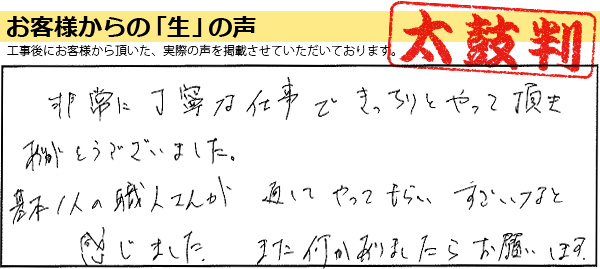 お客様からの「生」の声
工事後にお客様から頂いた、実際の声を掲載させていただいております。
太鼓判
非常に丁寧な仕事できっちりとやって頂き
ありがとうございました。
基本1人の職人さんが 通して やってもらい すごいなと
感じました。 また何かありましたらお願いします